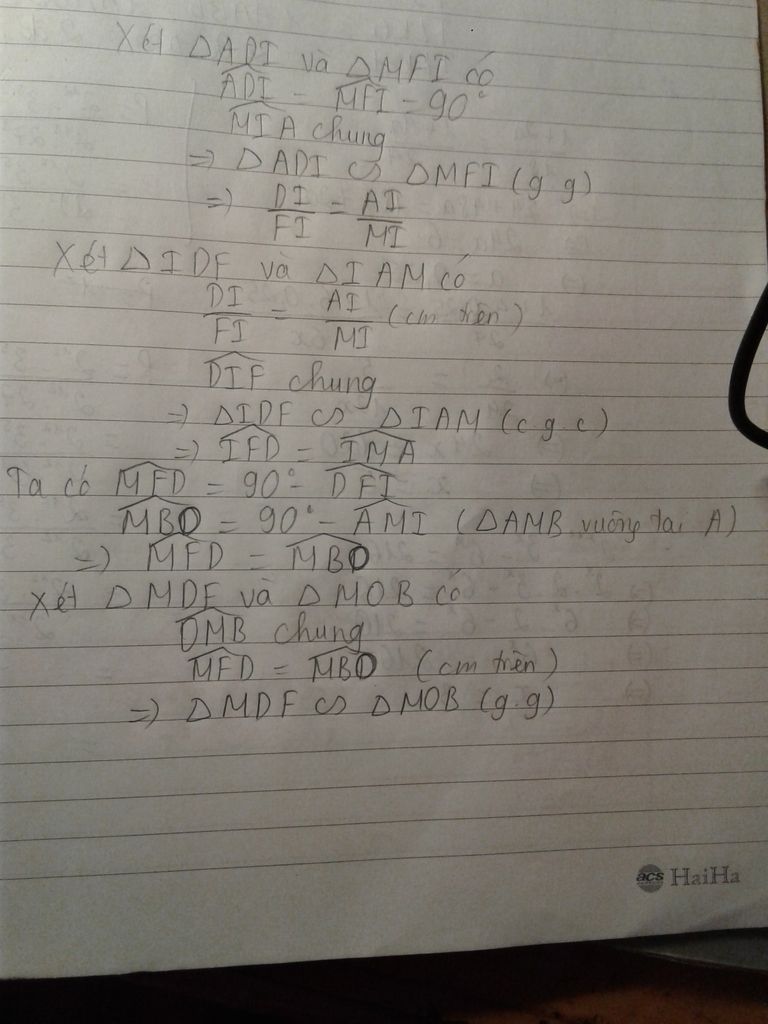 Xét ΔADI và ΔMFI có
$\widehat{ADI} = \widehat{MFI} = 90°$
$\widehat{MIA}$ chung
=> ΔADI ∽ ΔMFI (g g)
=> $\frac{DI}{FI} = \frac{AI}{MI}$
Xét ΔIDF và ΔIAM có
$\frac{DI}{FI} = \frac{AI}{MI}$ (cm trên)
$\widehat{DIF}$ chung
=> ΔIDF ∽ ΔIAM (c g c)
=> $\widehat{IFD} = \widehat{IMA}$
Ta có $\widehat{MFD} = 90° - \widehat{DFI}$
$\widehat{MBO} = 90° - \widehat{AMI}$ (ΔAMB vuông tại A)
=> $\widehat{MFD} = \widehat{MBO}$
Xét ΔMDF và ΔMOB có
$\widehat{OMB}$ chung
$\widehat{MFD} = \widehat{MBO}$ (cm trên)
=> ΔMDF ∽ ΔMOB (g.g)
acs HaiHa